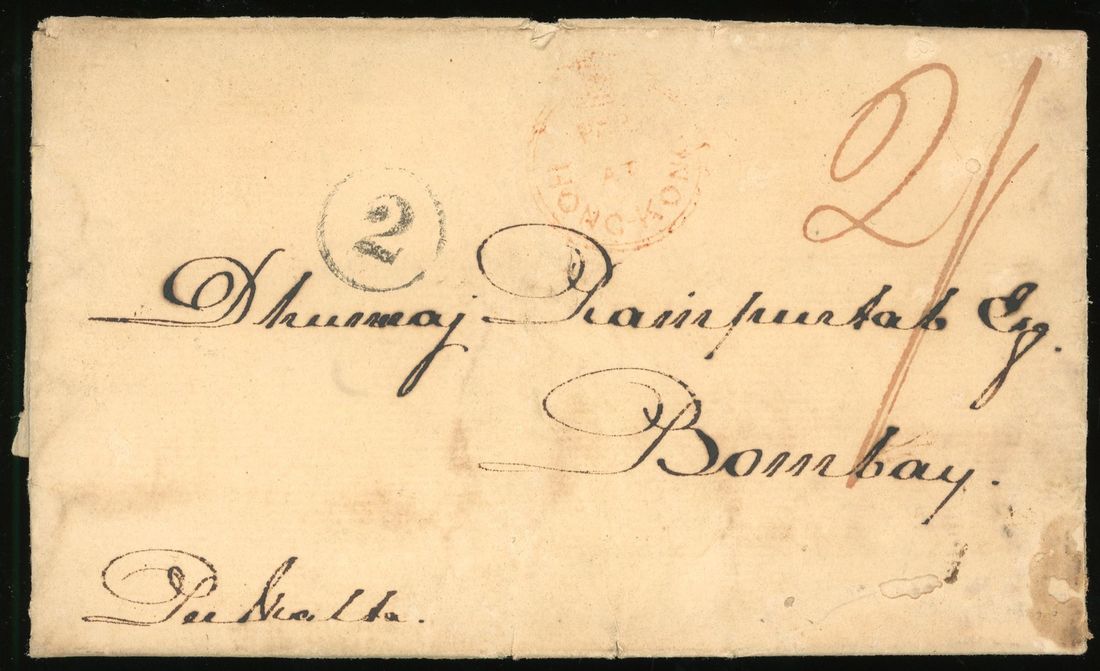 PAID
AT
HONG-KONG
2/
2
Dhunraj Rampurtab Esq.
Bombay.
Per Malta.